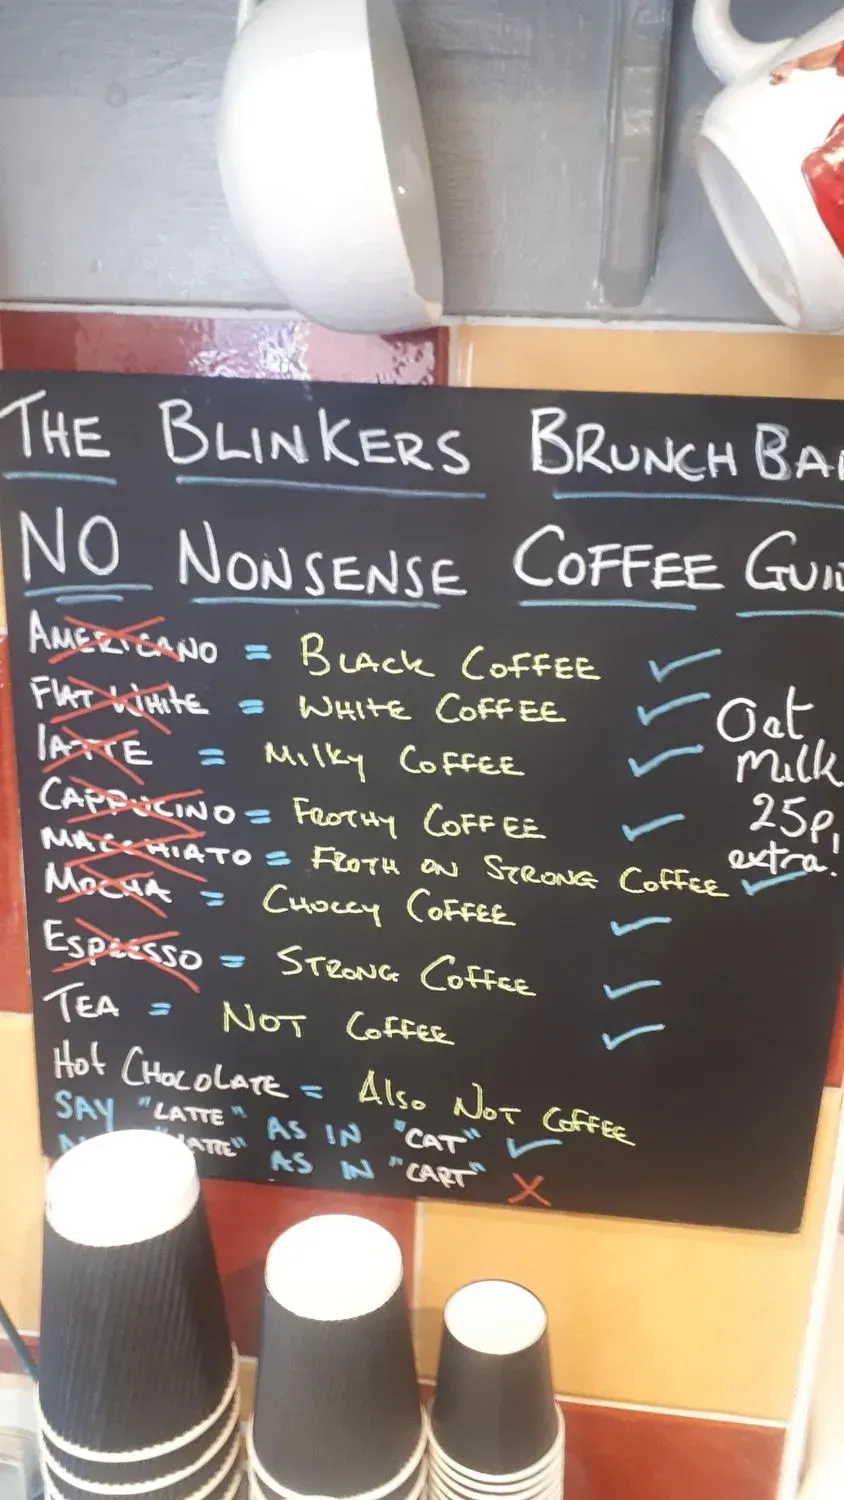 THE BLINKERS BRUNCH BA
NO NONSENSE COFFEE GUI
AMERICANO = BLACK COFFEE ✓
FLAT WHITE = WHITE COFFEE ✓
LATTE = MILKY COFFEE ✓
CAPPUCINO = FROTHY COFFEE ✓
MACCHIATO = FROTH ON STRONG COFFEE ✓
MOCHA = CHOCCY COFFEE ✓
ESPRESSO = STRONG COFFEE ✓
TEA = NOT COFFEE ✓
Hot CHOCOLATE = Also NOT COFFEE
SAY "LATTE" AS IN "CAT" ✓
"LATTE" AS IN "CART" X
Oat
Milk
25p,
extra.